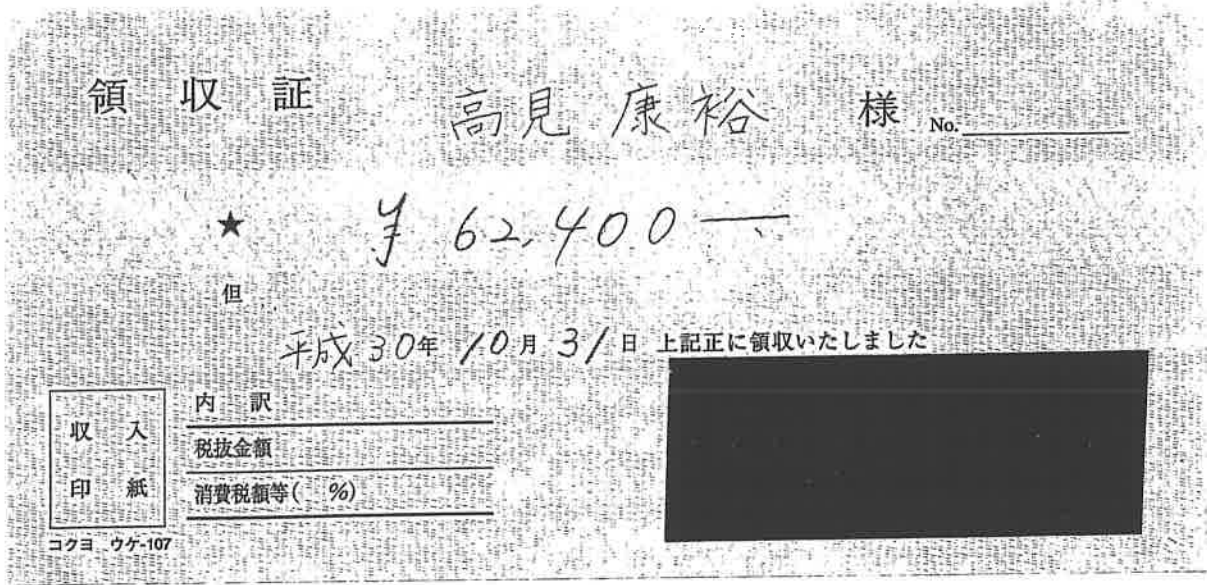 領収証 高見 康裕 様 No.
★ ¥62,400―
但
平成30年10月31日 上記正に領収いたしました
収入印紙
内訳
税抜金額
消費税額等( %)
コクヨ ウケ-107